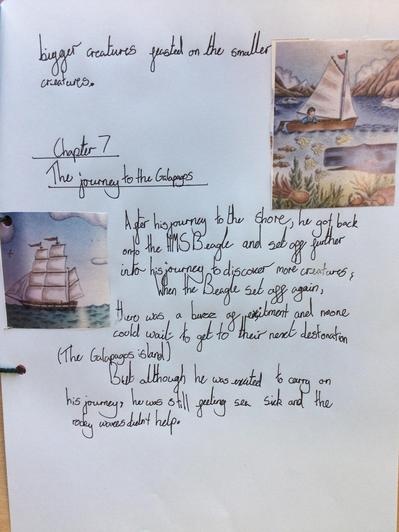 bigger creatures feasted on the smaller
creatures.
Chapter 7
The journey to the Galapagos
After his journey to the shore, he got back
onto the HMS Beagle and set off further
into his journey to discover more creatures;
When the Beagle set off again,
there was a buzz of exitment and noone
could wait to get to their next destonation
(The Galapagos island)
But although he was exited to carry on
his journey, he was still feeling sea sick and the
rocky waves didn't help.